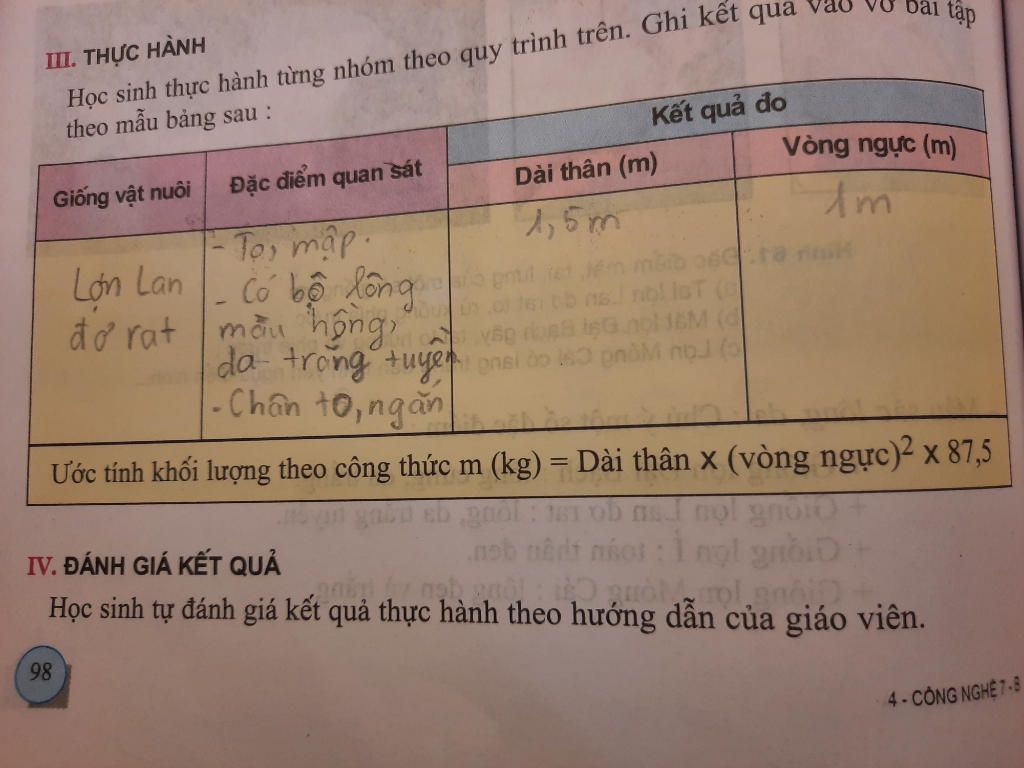 III. THỰC HÀNH
Học sinh thực hành từng nhóm theo quy trình trên. Ghi kết quả vào vở bài tập
theo mẫu bảng sau :
Giống vật nuôi
Đặc điểm quan sát
Kết quả đo
Dài thân (m)
Vòng ngực (m)
Lợn Lan
đơ rat
- To, mập.
- Có bộ lông
mầu hồng,
da trắng tuyền
- Chân to, ngắn
1,5m
1m
Ước tính khối lượng theo công thức m (kg) = Dài thân x (vòng ngực)² x 87,5
IV. ĐÁNH GIÁ KẾT QUẢ
Học sinh tự đánh giá kết quả thực hành theo hướng dẫn của giáo viên.
98
4 - CÔNG NGHỆ 7 - B